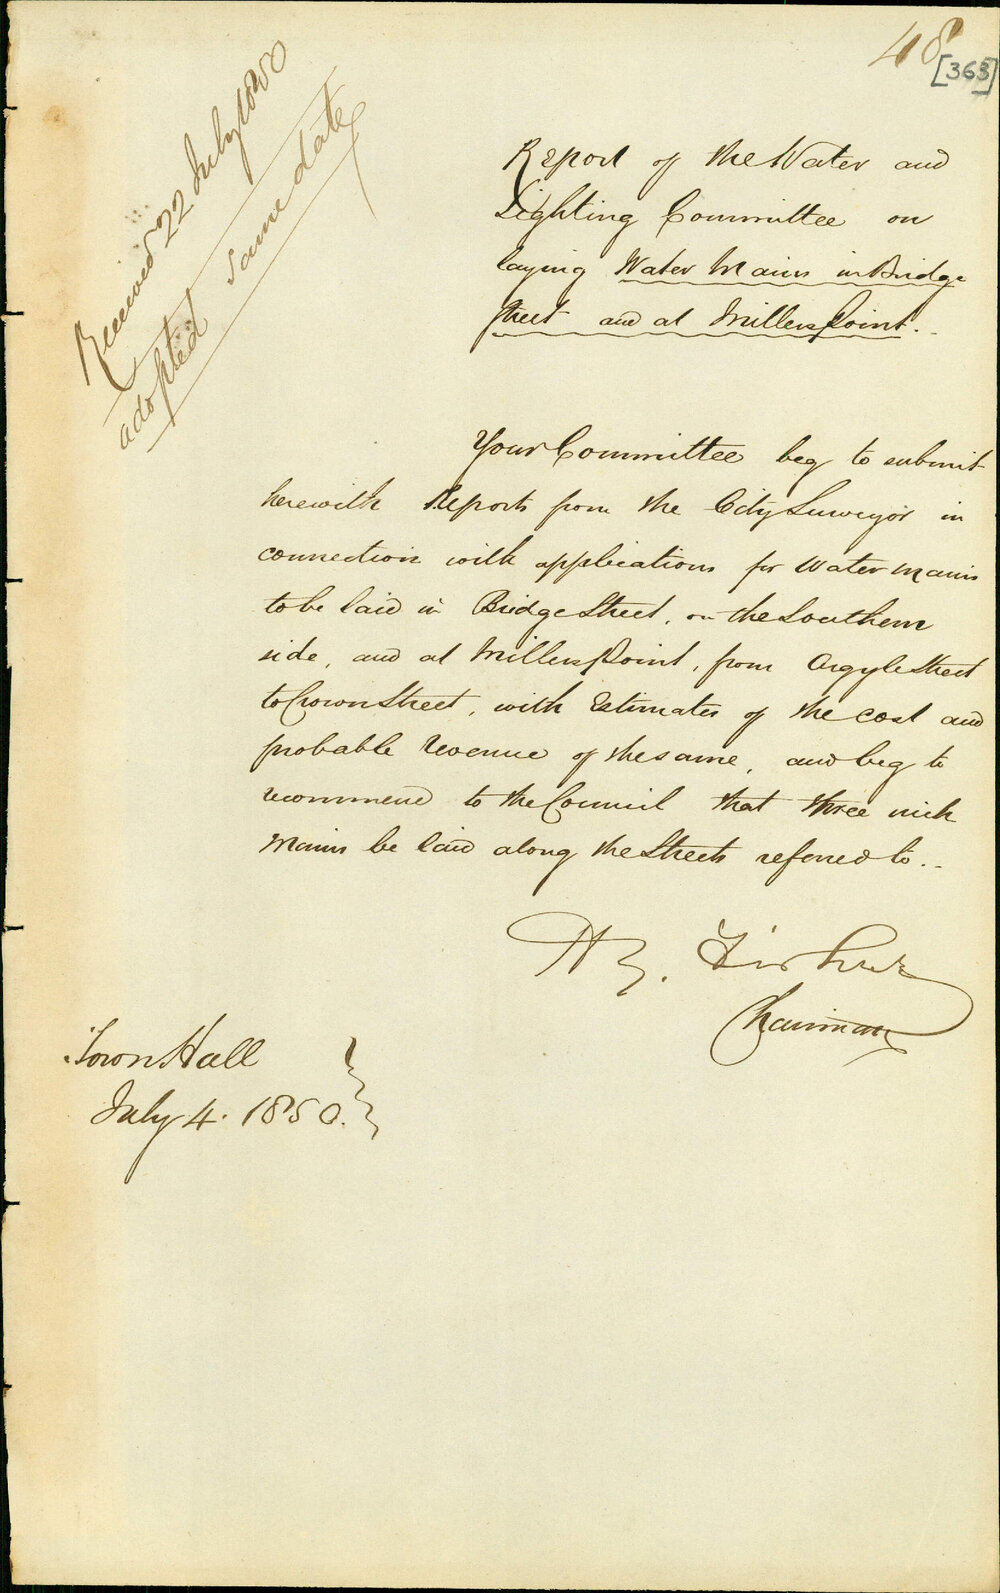 48
[363]
Received 22 July 1850
adopted same date
Report of the Water and
Lighting Committee on
laying Water Mains in Bridge
Street and at Millers Point.
Your Committee beg to submit
herewith Reports from the City Surveyor in
connection with applications for Water Mains
to be laid in Bridge Street, on the Southern
side, and at Millers Point, from Argyle Street
to Crown Street, with Estimates of the cost and
probable revenue of the same, and beg to
recommend to the Council that three inch
Mains be laid along the Streets referred to.
Chairman
Town Hall
July 4. 1850.